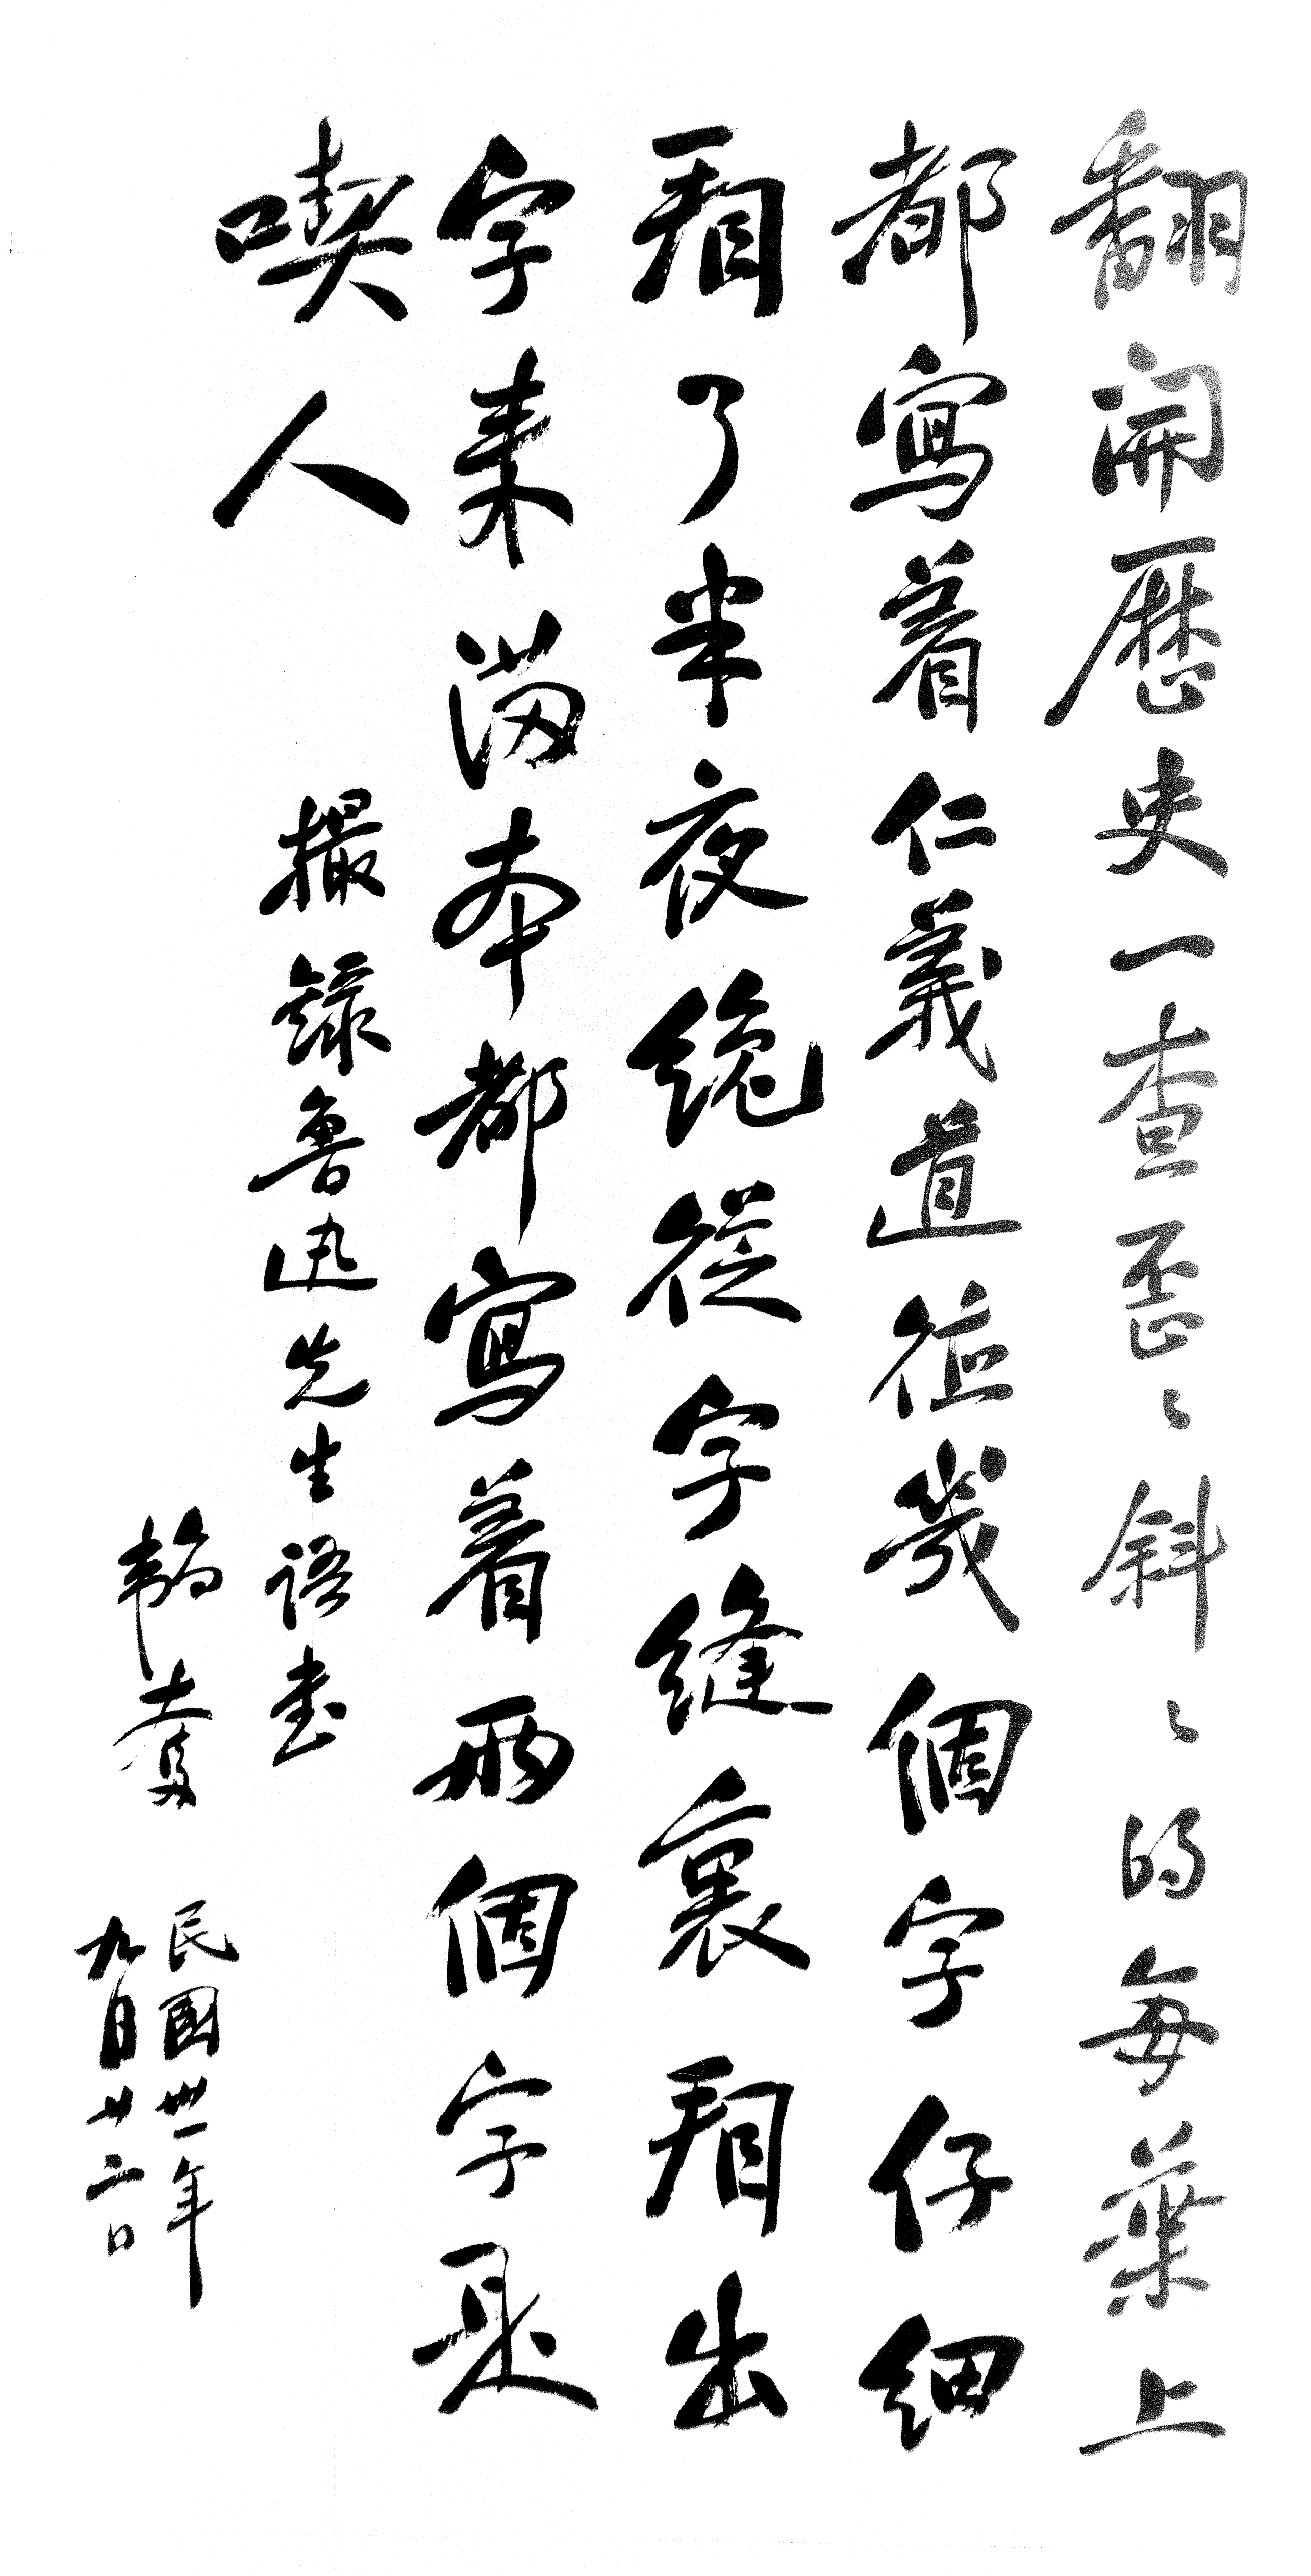 翻開歷史一查歪々斜々的每葉上
都寫着仁義道德幾個字仔細
看了半夜纔從字縫裏看出
字來滿本都寫着兩個字是
喫人
撮錄魯迅先生語書
韜奮
民國卅一年
九月廿二日